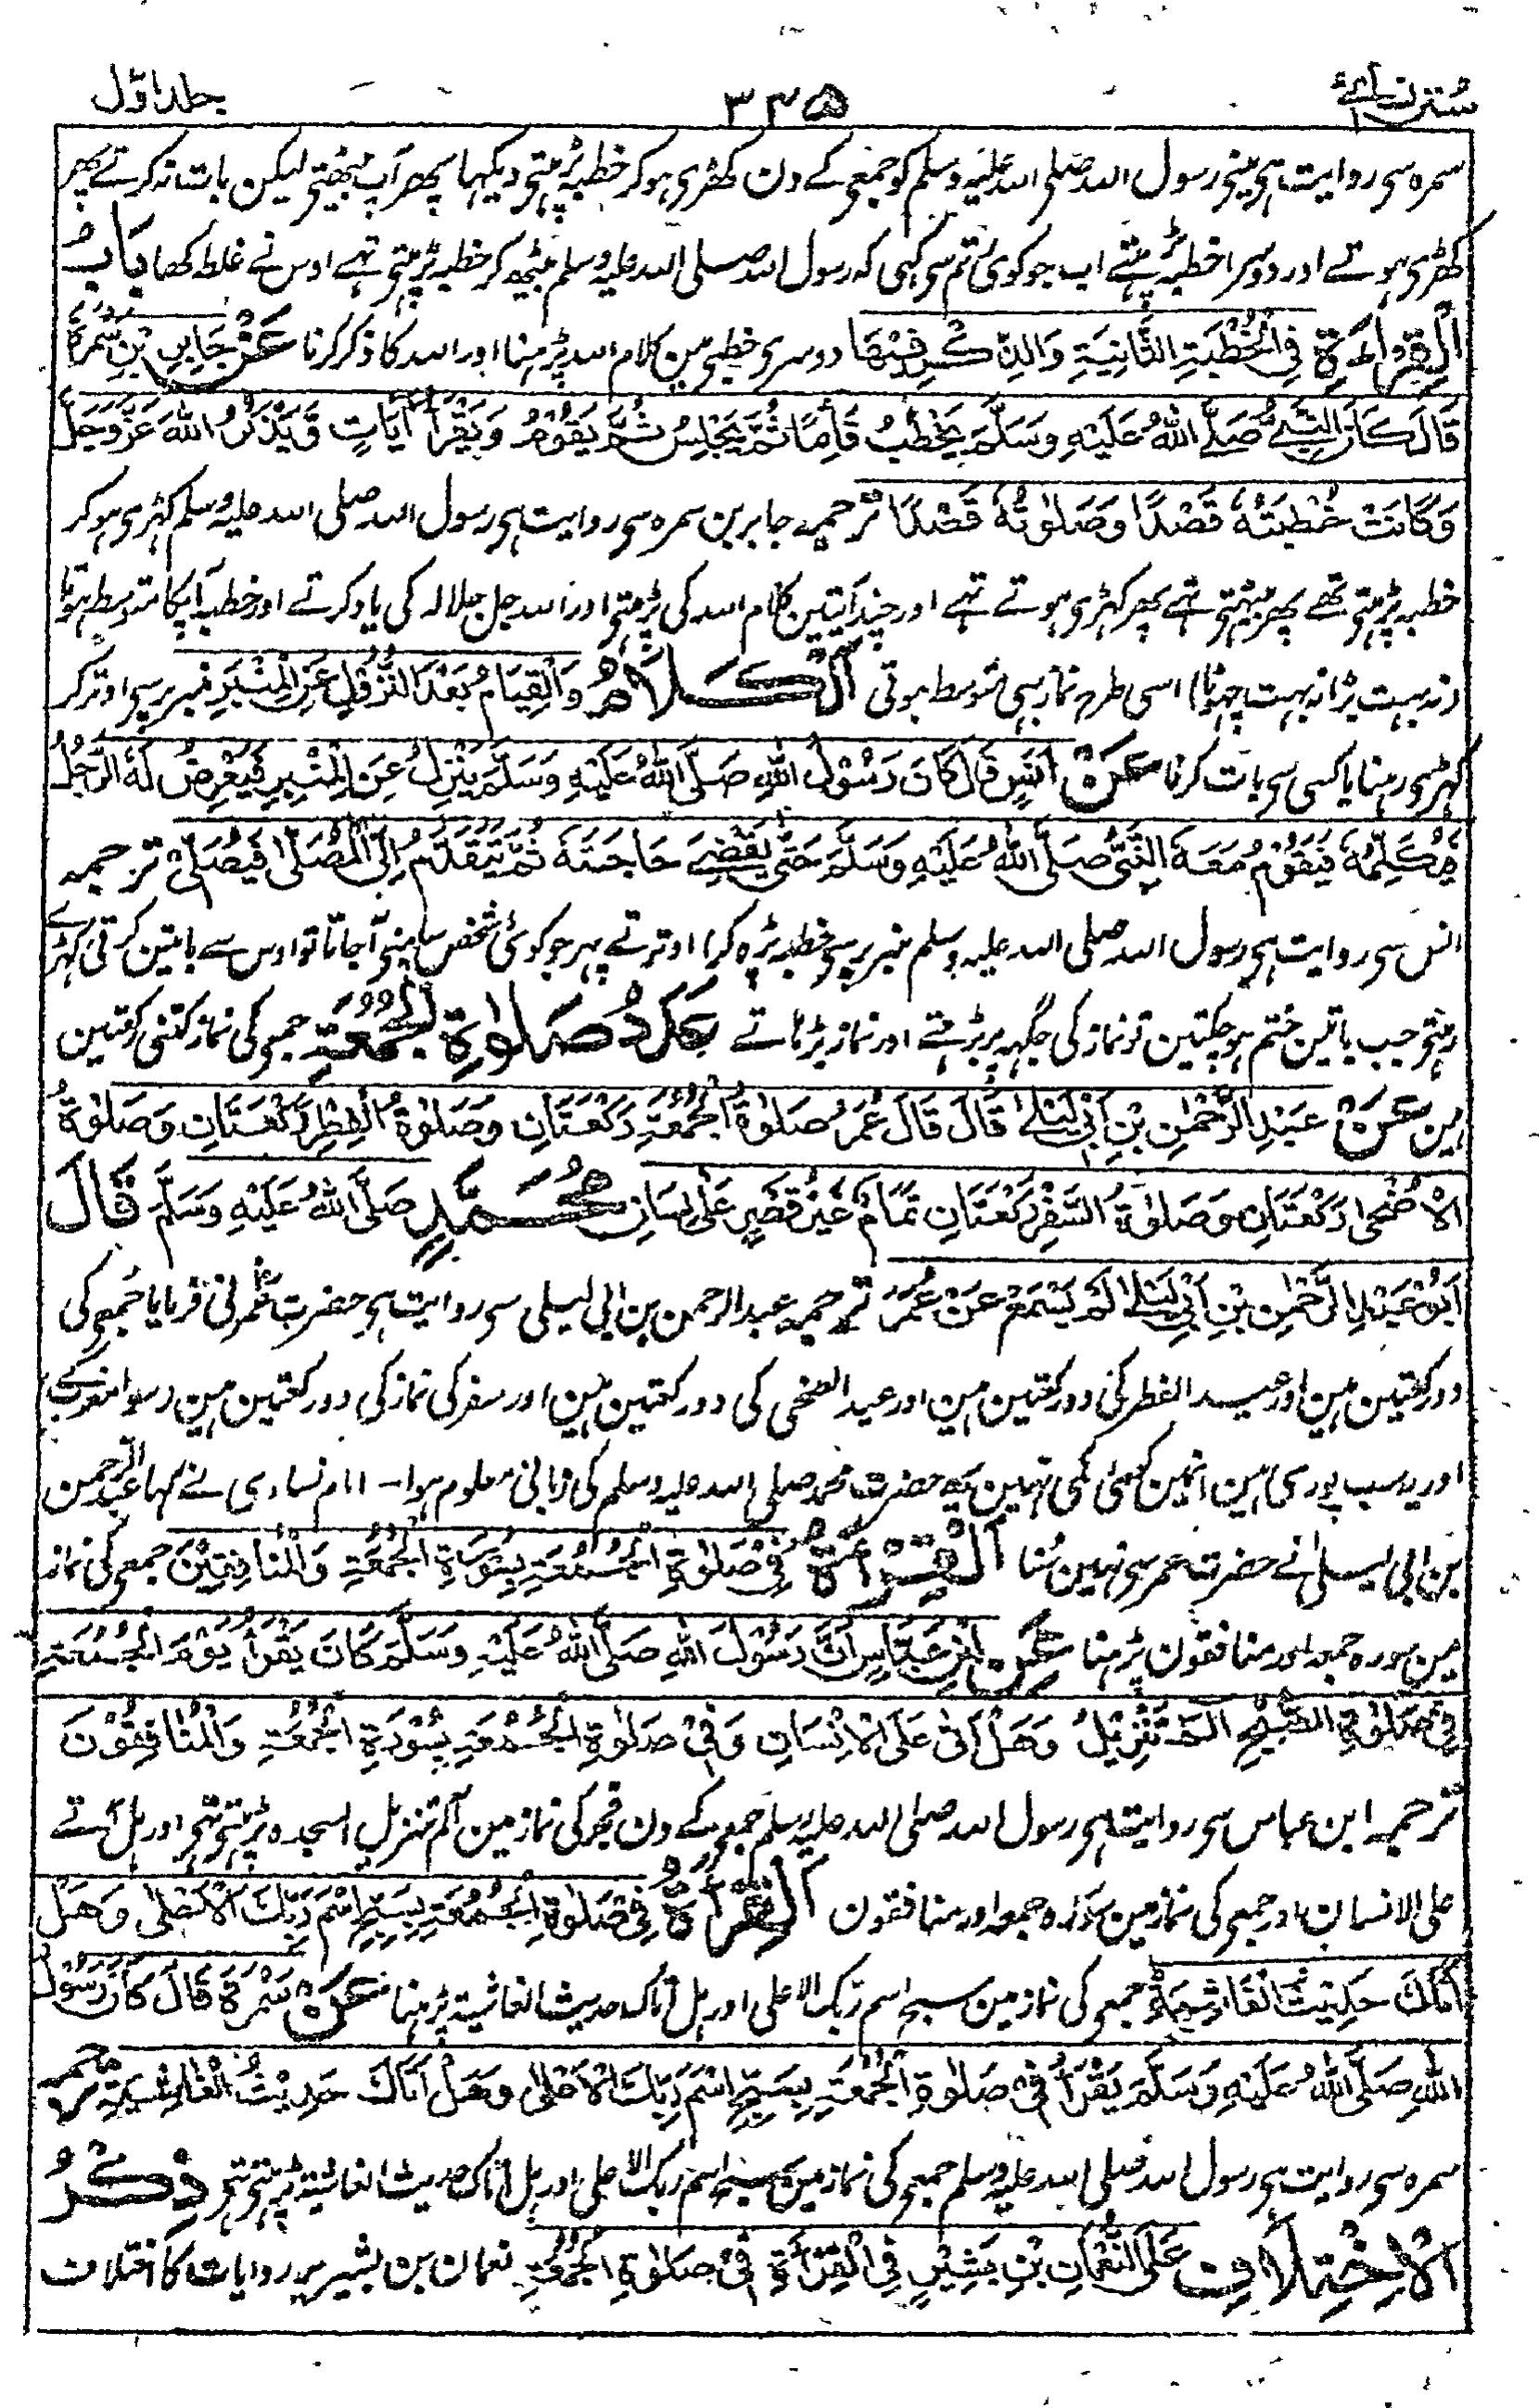 سنن نسائی ۳۳۵ جلد اوّل
سمرہ سی روایت ہی مینی رسول اللہ صلی اللہ علیہ وسلم کو جمعی کے دن کھڑی ہو کر خطبہ پڑہتی دیکہا پھر آپ بیٹھتی لیکن بات نہ کرتے پھر
کھڑی ہوتے اور دوسرا خطبہ پڑہتے اب جو کوئی تم سی کہی کہ رسول اللہ صلی اللہ علیہ وسلم بیٹھ کر خطبہ پڑہتی تہے اوس نے غلط کہا بَابُ
الْقِرَاءَةِ فِي الْخُطْبَةِ الثَّانِيَةِ وَالذِّكْرِ فِيْهَا دوسری خطبی مین کلام اللہ پڑہنا اور اللہ کا ذکر کرنا عَنْ جَابِرِ بْنِ سَمُرَةَ
قَالَ كَانَ النَّبِيُّ صَلَّى اللهُ عَلَيْهِ وَسَلَّمَ يَخْطُبُ قَائِمًا ثُمَّ يَجْلِسُ ثُمَّ يَقُوْمُ وَيَقْرَأُ آيَاتٍ وَيَذْكُرُ اللهَ عَزَّ وَجَلَّ
وَكَانَتْ خُطْبَتُهُ قَصْدًا وَصَلٰوتُهُ قَصْدًا ترجمہ جابر بن سمرہ سی روایت ہی رسول اللہ صلی اللہ علیہ وسلم کہڑی ہو کر
خطبہ پڑہتی تھے پھر بیٹھتی تہے پھر کہڑی ہوتے تہے اور چند آیتین کلام اللہ کی پڑہتی اور اللہ جل جلالہ کی یاد کرتے اور خطبہ آپکا متوسط ہوتا
(نہ بہت بڑا نہ بہت چہوٹا) اسی طرح نماز بہی متوسط ہوتی اَلْكَلَامُ وَالْقِيَامُ بَعْدَ النُّزُوْلِ عَنِ الْمِنْبَرِ منبر پر سی اوتر کر
کہڑی رہنا یا کسی سی بات کرنا عَنْ اَنَسٍ قَالَ كَانَ رَسُوْلُ اللهِ صَلَّى اللهُ عَلَيْهِ وَسَلَّمَ يَنْزِلُ عَنِ الْمِنْبَرِ فَيَعْرِضُ لَهُ الرَّجُلُ
فَيُكَلِّمُهُ فَيَقُوْمُ مَعَهُ النَّبِيُّ صَلَّى اللهُ عَلَيْهِ وَسَلَّمَ حَتّٰى يَقْضِيَ حَاجَتَهُ ثُمَّ يَتَقَدَّمُ اِلَى الْمُصَلّٰى فَيُصَلِّيْ ترجمہ
انس سی روایت ہی رسول اللہ صلی اللہ علیہ وسلم منبر پر سی خطبہ پڑہ کر اوترتے پہر جو کوئی شخص سامنی آجاتا تو اوس سے باتین کرتی کہڑے
رہتی جب باتین ختم ہو چکتین تو نماز کی جگہہ پر بڑہتے اور نماز پڑہاتے عَدَدُ صَلٰوةِ الْجُمُعَةِ جمعی کی نماز کتنی رکعتین
ہین عَنْ عَبْدِ الرَّحْمٰنِ بْنِ اَبِيْ لَيْلٰى قَالَ قَالَ عُمَرُ صَلٰوةُ الْجُمُعَةِ رَكْعَتَانِ وَصَلٰوةُ الْفِطْرِ رَكْعَتَانِ وَصَلٰوةُ
الْاَضْحٰى رَكْعَتَانِ وَصَلٰوةُ السَّفَرِ رَكْعَتَانِ تَمَامٌ غَيْرُ قَصْرٍ عَلٰى لِسَانِ مُحَمَّدٍ صَلَّى اللهُ عَلَيْهِ وَسَلَّمَ قَالَ
اَبُوْ عَبْدِ الرَّحْمٰنِ بْنِ اَبِيْ لَيْلٰى لَمْ يَسْمَعْ عَنْ عُمَرَ ترجمہ عبدالرحمن بن ابی لیلی سی روایت ہی حضرت عمر نی فرمایا جمعی کی
دو رکعتین ہین اور عید الفطر کی دو رکعتین ہین اور عید الضحی کی دو رکعتین ہین اور سفر کی نماز کی دو رکعتین ہین (سوا مغرب کے)
اور یہ سب پوری ہین انمین کچھ کمی نہین یہ حضرت محمد صلی اللہ علیہ وسلم کی زبانی معلوم ہوا - امام نسائی نے کہا عبد الرحمن
بن ابی لیلی نے حضرت عمر سی نہین سنا اَلْقِرَاءَةُ فِيْ صَلٰوةِ الْجُمُعَةِ بِسُوْرَةِ الْجُمُعَةِ وَالْمُنَافِقِيْنَ جمعی کی نماز
مین سورہ جمعہ اور منافقون پڑہنا عَنِ ابْنِ عَبَّاسٍ اَنَّ رَسُوْلَ اللهِ صَلَّى اللهُ عَلَيْهِ وَسَلَّمَ كَانَ يَقْرَأُ يَوْمَ الْجُمُعَةِ
فِيْ صَلٰوةِ الصُّبْحِ الٓمّٓ تَنْزِيْلُ وَهَلْ اَتٰى عَلَى الْاِنْسَانِ وَفِيْ صَلٰوةِ الْجُمُعَةِ بِسُوْرَةِ الْجُمُعَةِ وَالْمُنَافِقُوْنَ
ترجمہ ابن عباس سی روایت ہی رسول اللہ صلی اللہ علیہ وسلم جمعی کے دن فجر کی نماز مین الم تنزیل السجدہ پڑہتی تہی اور ہل اتے
علی الانسان اور جمعی کی نماز مین سورہ جمعہ اور منافقون اَلْقِرَاءَةُ فِيْ صَلٰوةِ الْجُمُعَةِ بِسَبِّحِ اسْمَ رَبِّكَ الْاَعْلٰى وَهَلْ
اَتٰكَ حَدِيْثُ الْغَاشِيَةِ جمعی کی نماز مین سبح اسم ربک الاعلی اور ہل اتٰک حدیث الغاشیۃ پڑہنا عَنْ سَمُرَةَ قَالَ كَانَ رَسُوْلُ
اللهِ صَلَّى اللهُ عَلَيْهِ وَسَلَّمَ يَقْرَأُ فِيْ صَلٰوةِ الْجُمُعَةِ بِسَبِّحِ اسْمَ رَبِّكَ الْاَعْلٰى وَهَلْ اَتَاكَ حَدِيْثُ الْغَاشِيَةِ ترجمہ
سمرہ سی روایت ہی رسول اللہ صلی اللہ علیہ وسلم جمعی کی نماز مین سبح اسم ربک الاعلی اور ہل اتاک حدیث الغاشیۃ پڑہتی تہی ذِكْرُ
الْاِخْتِلَافِ عَلَى النُّعْمَانِ بْنِ بَشِيْرٍ فِي الْقِرَاءَةِ فِيْ صَلٰوةِ الْجُمُعَةِ نعمان بن بشیر پر روایات کا اختلاف